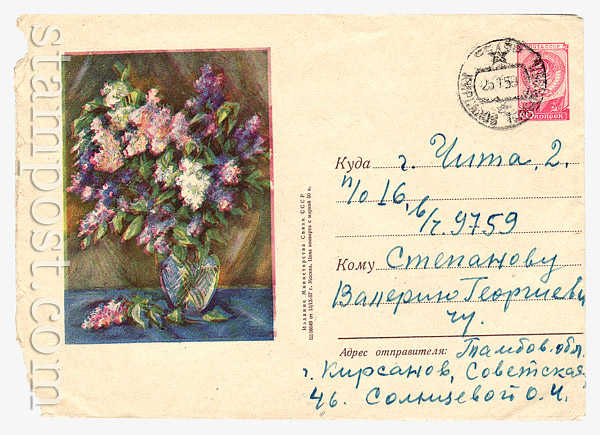 stampost.com
Издание Министерства Связи СССР
г. Москва. Цена конверта с маркой 50 к.
ПОЧТА СССР
40 КОПЕЕК
Куда г. Чита, 2.
п/о 16, в/ч. 9759
Кому Степанову
Валерию Георгиеви
чу.
Адрес отправителя: Тамбов. обл.
г. Кирсанов, Советская
46. Солнцевой О. И.